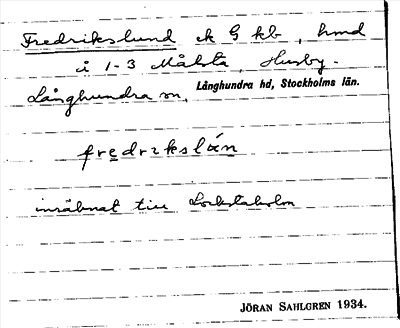 Fredrikslund ck G kb, hmd
å 1-3 Målsta, Husby-
Långhundra sn, Långhundra hd, Stockholms län.
fredrikslán
insålmat till Lockstaholm
JÖRAN SAHLGREN 1934.